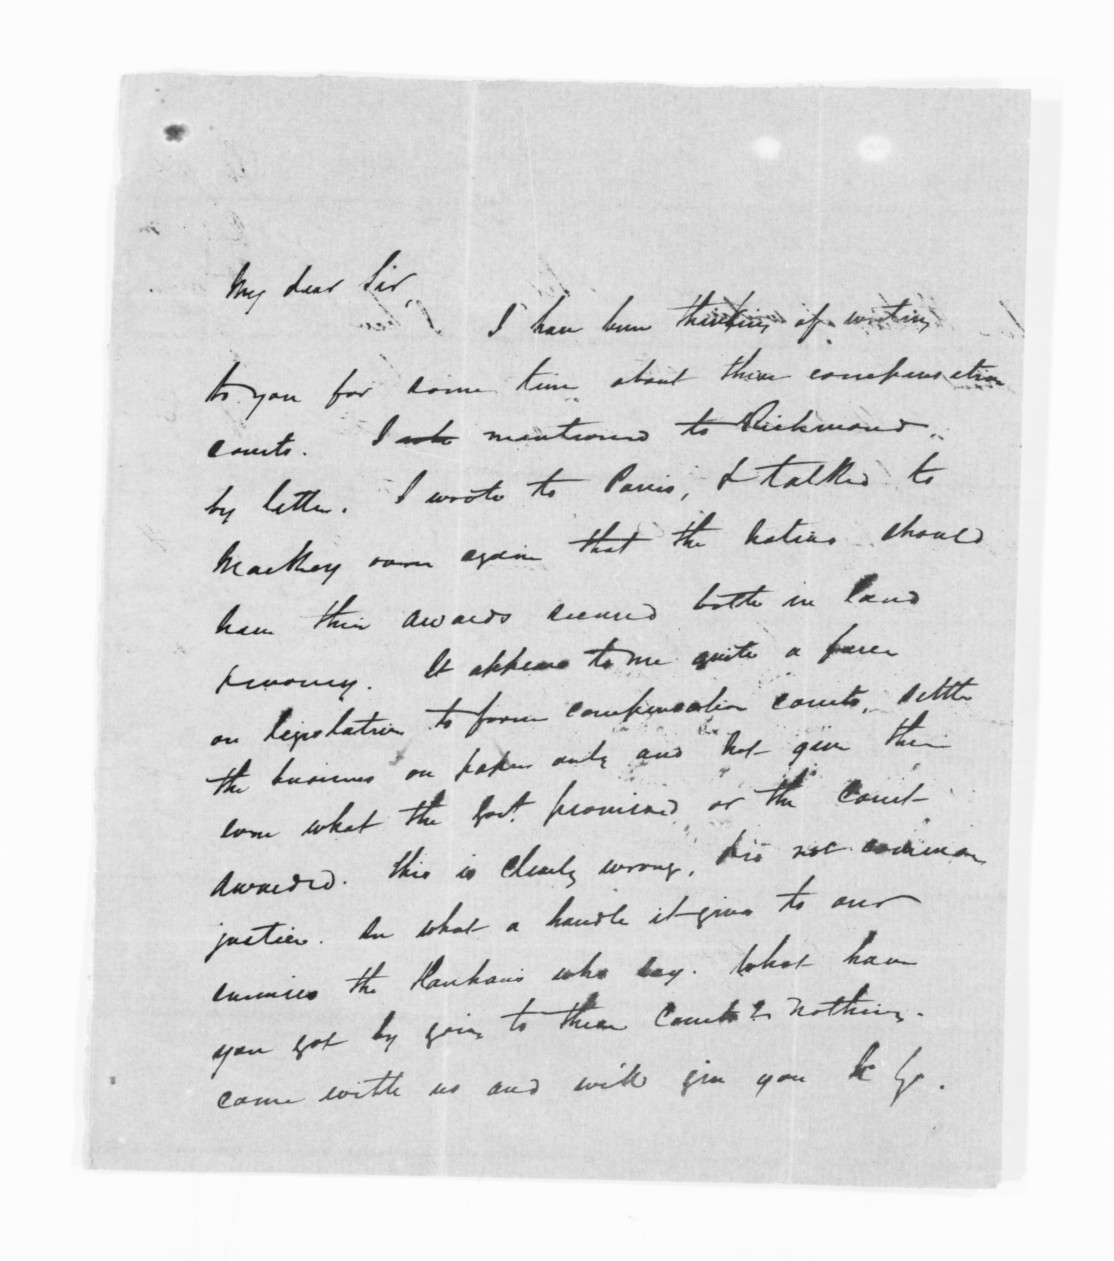 My dear Sir,
I have been thinking of writing
to you for some time about these compensation
courts. I mentioned to Richmond
by letter. I wrote to Parris, & talked to
Mackay over again that the natives should
have their awards secured both in land
& money. It appears to me quite a farce
on legislation to form compensation courts, settle
the business on paper only and not give them
even what the Govt. promised or the Court
awarded. This is clearly wrong, tis not common
justice. An what a handle it gives to our
enemies the Hauhaus who say. What have
you got by going to these Courts? Nothing.
come with us and will give you &c &c.